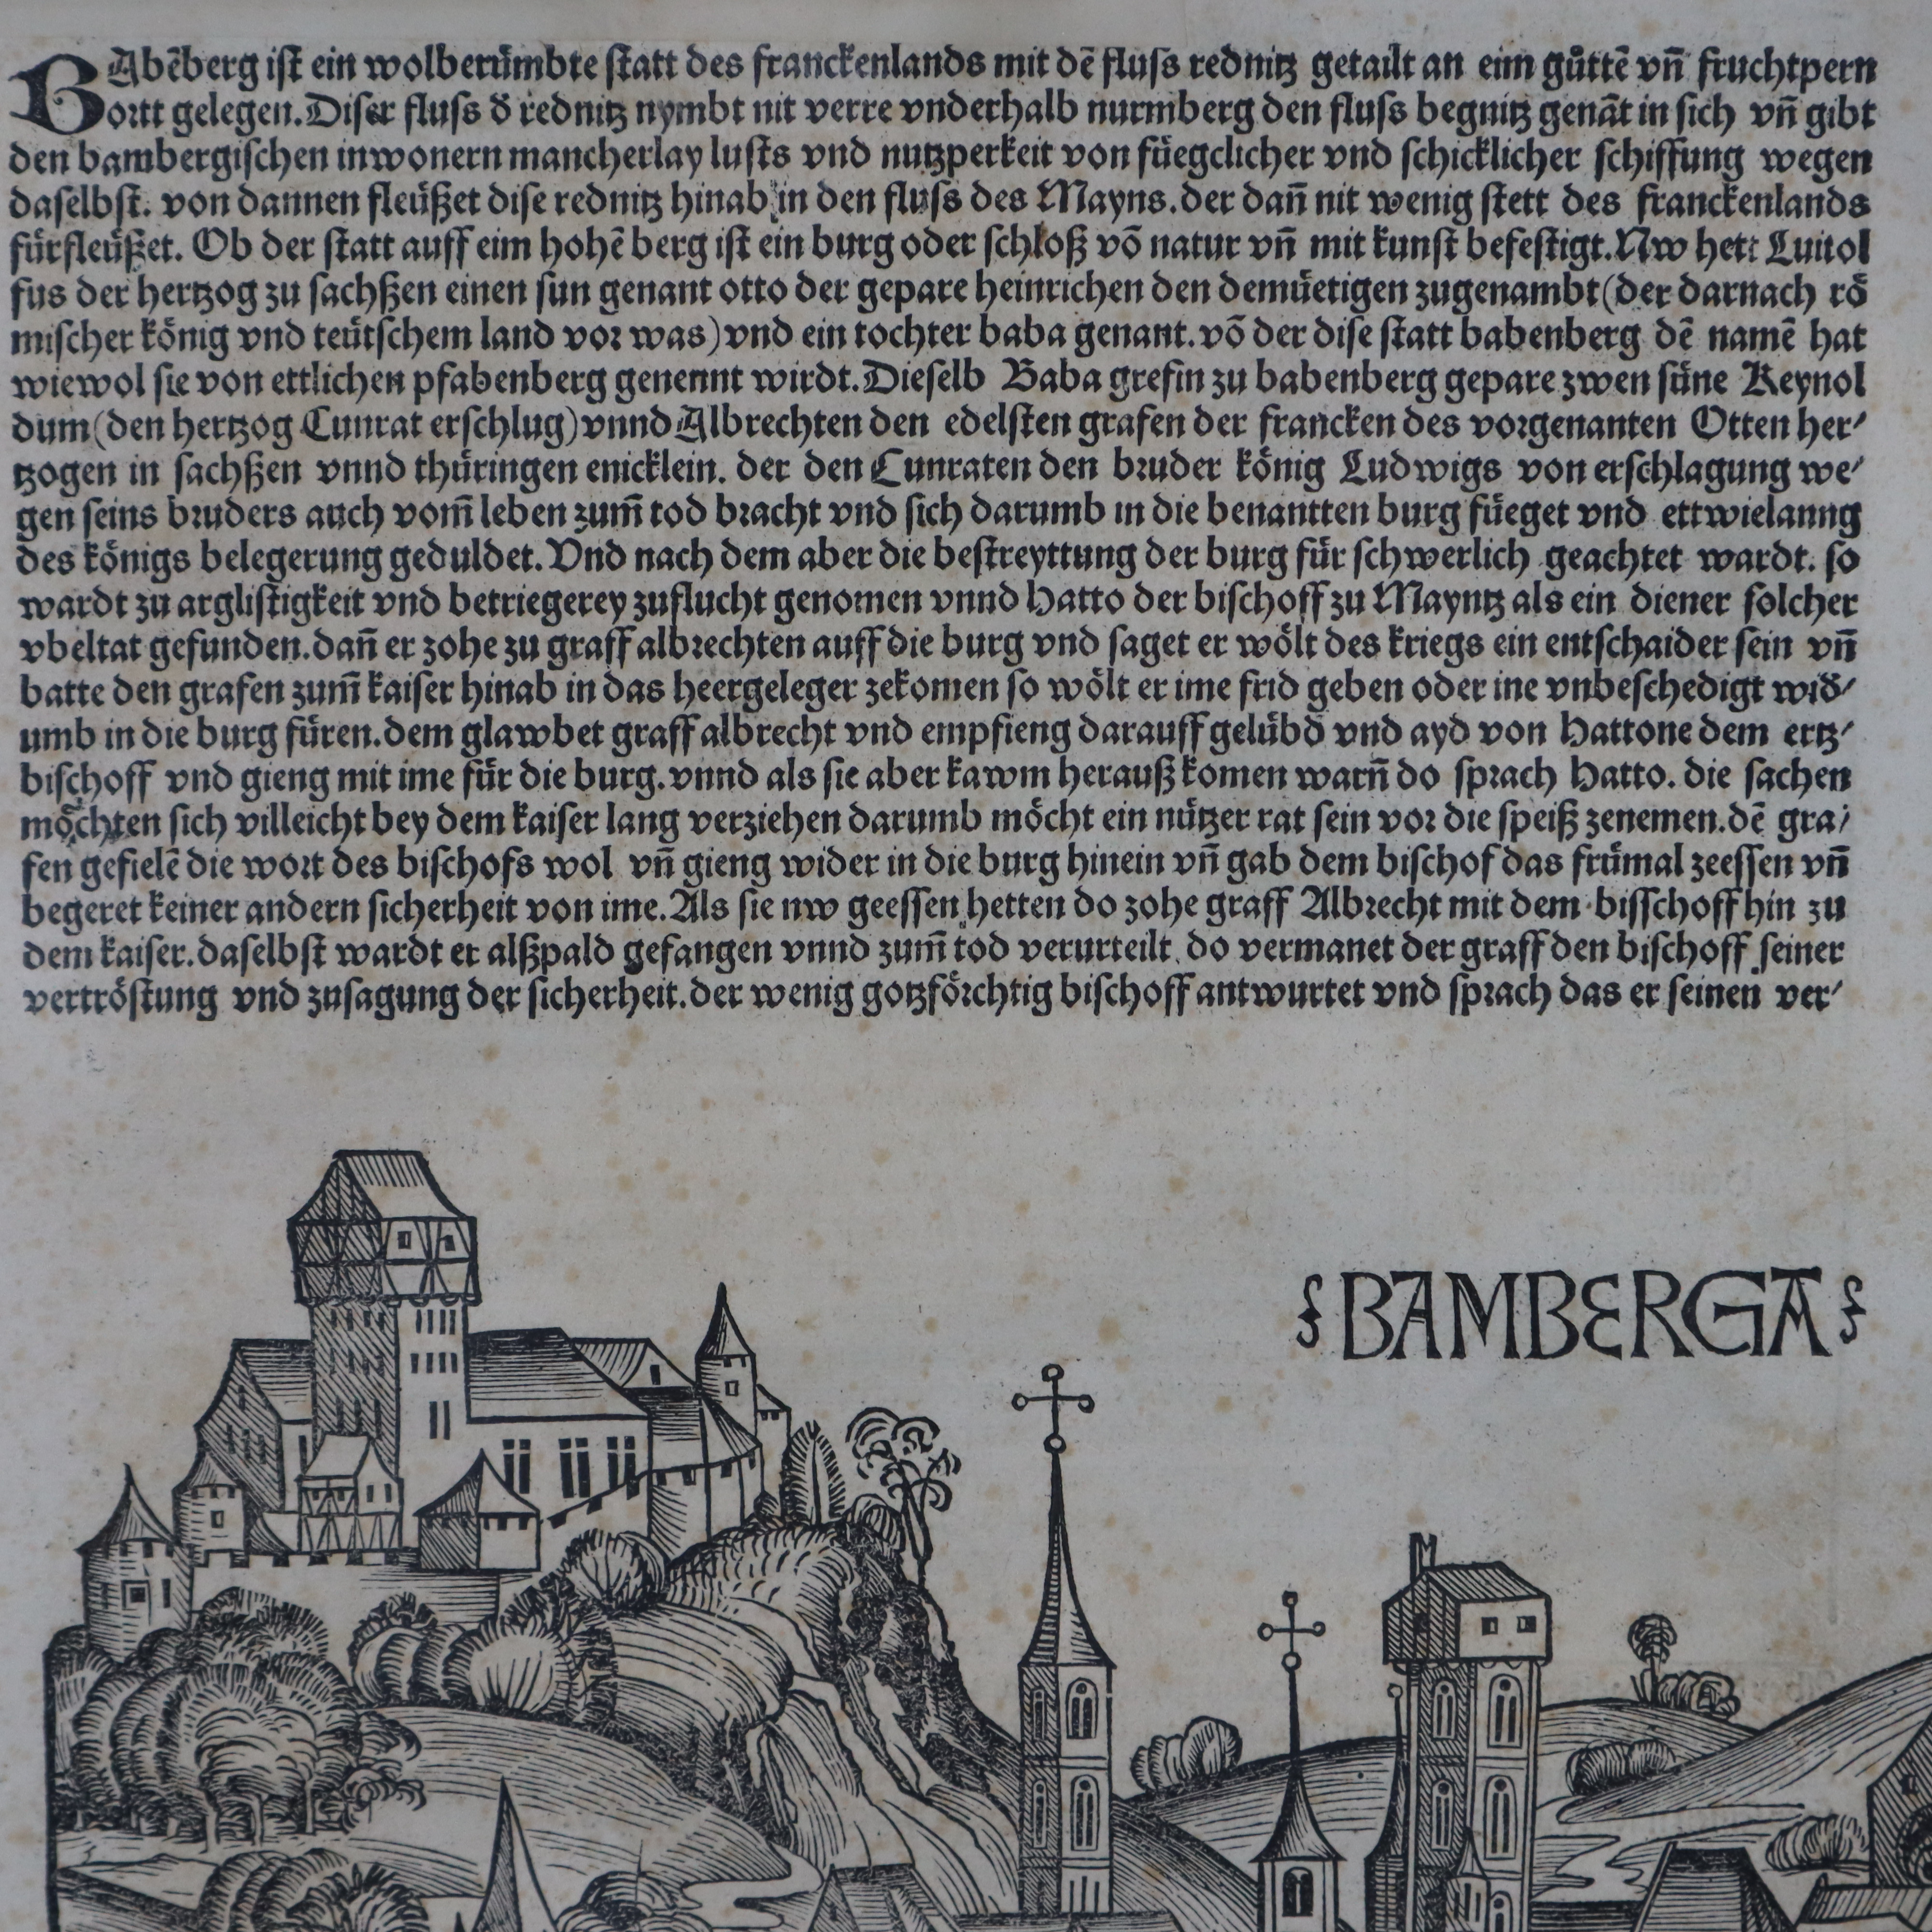 BAbēberg ist ein wolberümbte statt des franckenlands mit dē fluss rednitz getailt an eim gůttē vñ fruchtpern
ortt gelegen. Diser fluss d̄ rednitz nymbt nit verre vnderhalb nurmberg den fluss begnitz genāt in sich vñ gibt
den bambergischen inwonern mancherlay lusts vnd nutzperkeit von füegclicher vnd schicklicher schiffung wegen
daselbst. von dannen fleüßet dise rednitz hinab in den fluss des Mayns. der dañ nit wenig stett des franckenlands
fürfleüßet. Ob der statt auff eim hohē berg ist ein burg oder schloß vō natur vñ mit kunst befestigt. Nw hett Luitol
fus der hertzog zu sachßen einen sun genant otto der gepare heinrichen den demüetigen zugenambt (der darnach rö
mischer könig vnd teütschem land vor was) vnd ein tochter baba genant. vō der dise statt babenberg dē namē hat
wiewol sie von ettlichen pfabenberg genennt wirdt. Dieselb Baba grefin zu babenberg gepare zwen süne Reynol
dum (den hertzog Cunrat erschlug) vnnd Albrechten den edelsten grafen der francken des vorgenanten Otten her-
tzogen in sachßen vnnd thüringen enicklein. der den Cunraten den bruder könig Ludwigs von erschlagung we-
gen seins bruders auch vom̄ leben zum̄ tod bracht vnd sich darumb in die benantten burg füeget vnd ettwielanng
des königs belegerung geduldet. Vnd nach dem aber die bestreyttung der burg für schwerlich geachtet wardt. so
wardt zu arglistigkeit vnd betriegerey zuflucht genomen vnnd Hatto der bischoff zu Mayntz als ein diener solcher
vbeltat gefunden. dañ er zohe zu graff albrechten auff die burg vnd saget er wölt des kriegs ein entschaider sein vñ
batte den grafen zum̄ kaiser hinab in das heergeleger zekomen so wölt er ime frid geben oder ine vnbeschedigt wid̄-
umb in die burg füren. dem glawbet graff albrecht vnd empfieng darauff gelübd vnd ayd von Hattone dem ertz-
bischoff vnd gieng mit ime für die burg. vnnd als sie aber kawm herauß komen warñ do sprach Hatto. die sachen
möchten sich villeicht bey dem kaiser lang verziehen darumb möcht ein nützer rat sein vor die speiß zenemen. dē gra-
fen gefielē die wort des bischofs wol vñ gieng wider in die burg hinein vñ gab dem bischof das frümal zeessen vñ
begeret keiner andern sicherheit von ime. Als sie nw geessen hetten do zohe graff Albrecht mit dem bisschoff hin zu
dem kaiser. daselbst wardt er alßpald gefangen vnnd zum̄ tod verurteilt. do vermanet der graff den bischoff seiner
vertröstung vnd zusagung der sicherheit. der wenig gotzförchtig bischoff antwurtet vnd sprach das er seinen ver-
BAMBERGA